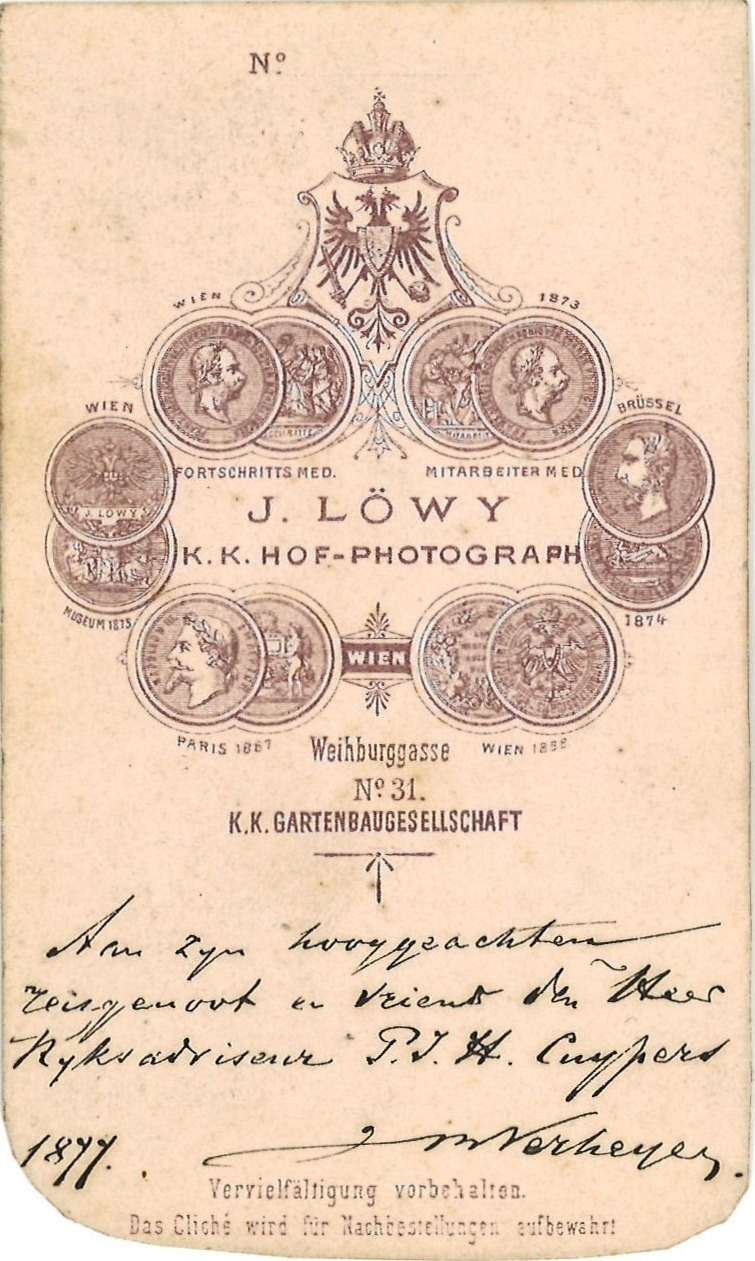 Nº
WIEN 1873
WIEN BRÜSSEL
FORTSCHRITTS MED. MITARBEITER MED
J. LÖWY
J. LÖWY
K. K. HOF-PHOTOGRAPH
MUSEUM 1875 1874
WIEN
PARIS 1867 Weihburggasse WIEN 1858
Nº 31.
K.K. GARTENBAUGESELLSCHAFT
Aan zyn hooggeachten
reisgenoot en vriend den Heer
Ryksadviseur P. J. H. Cuypers
1877. J M Verheyen.
Vervielfältigung vorbehalten.
Das Cliché wird für Nachbestellungen aufbewahrt